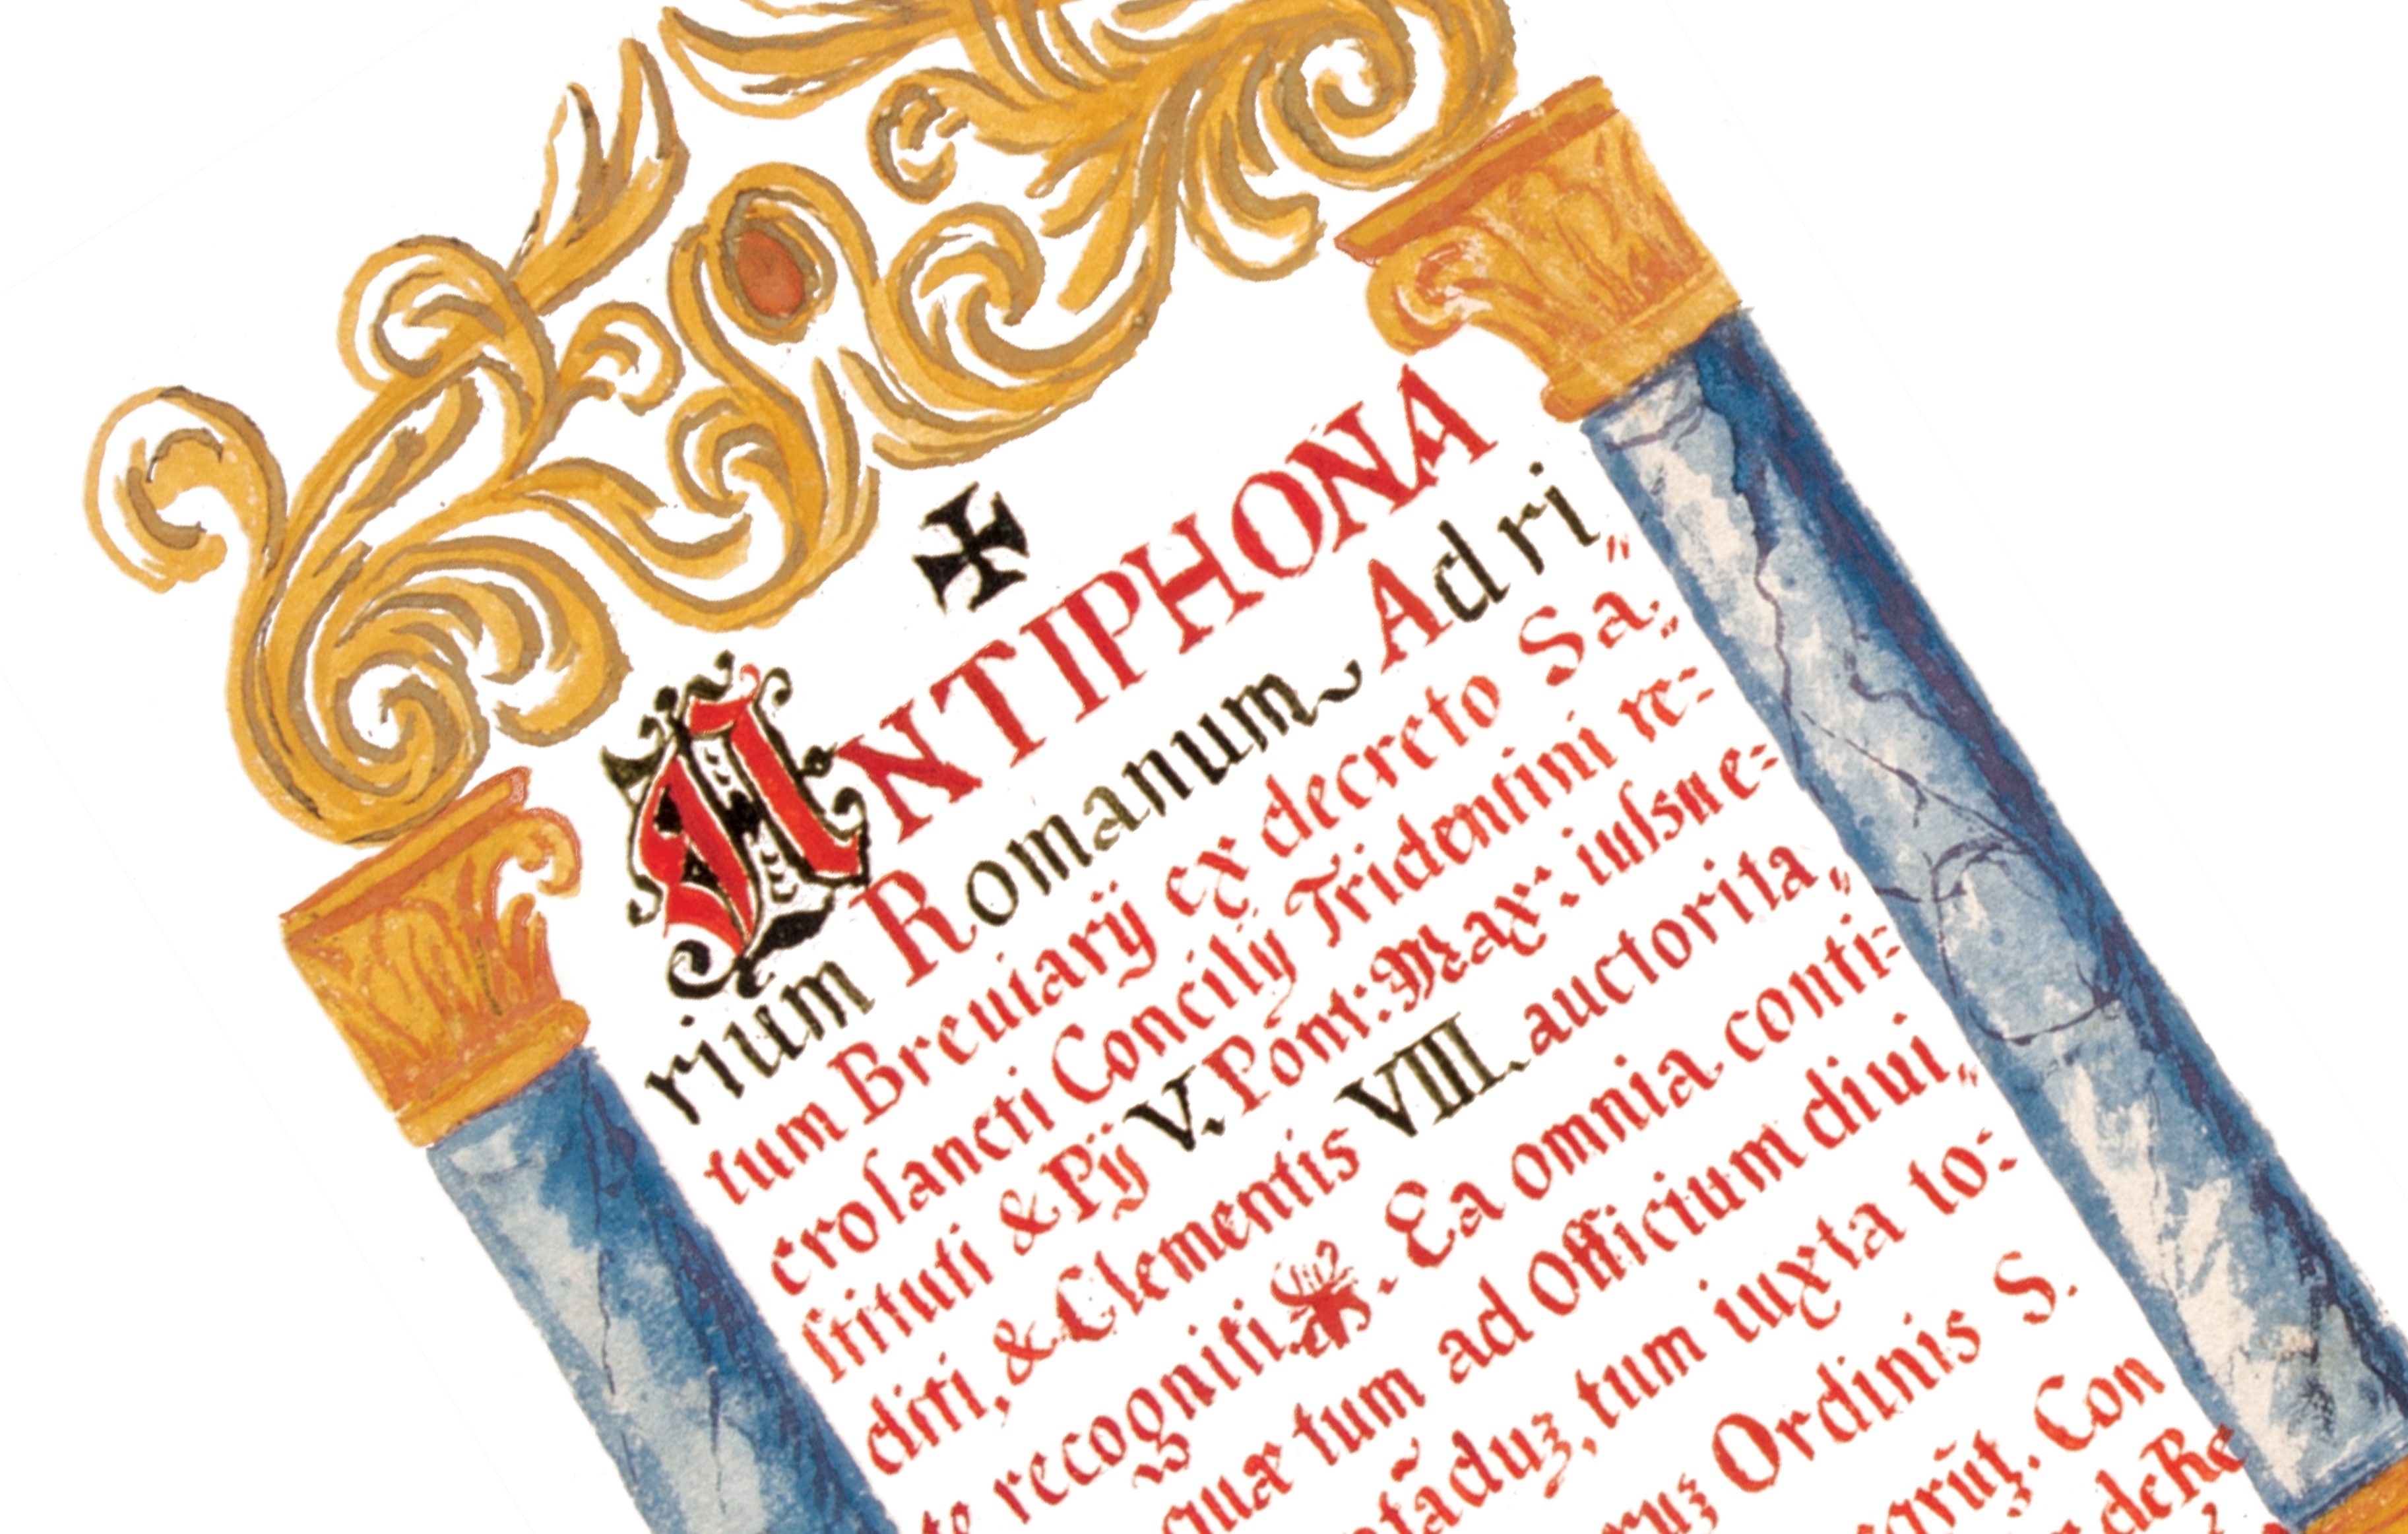 ✠
ANTIPHONA
rium Romanum Adri„
tum Breuiarij ex decreto Sa„
croſancti Concilij Tridentini re=
ſtituti & Pij V. Pont: Max: iuſsue=
diti, & Clementis VIII. auctorita„
te recogniti. Ea omnia conti=
quæ tum ad Officium diui„
tãduʒ, tum iuxta to=
Ordinis S.
Con